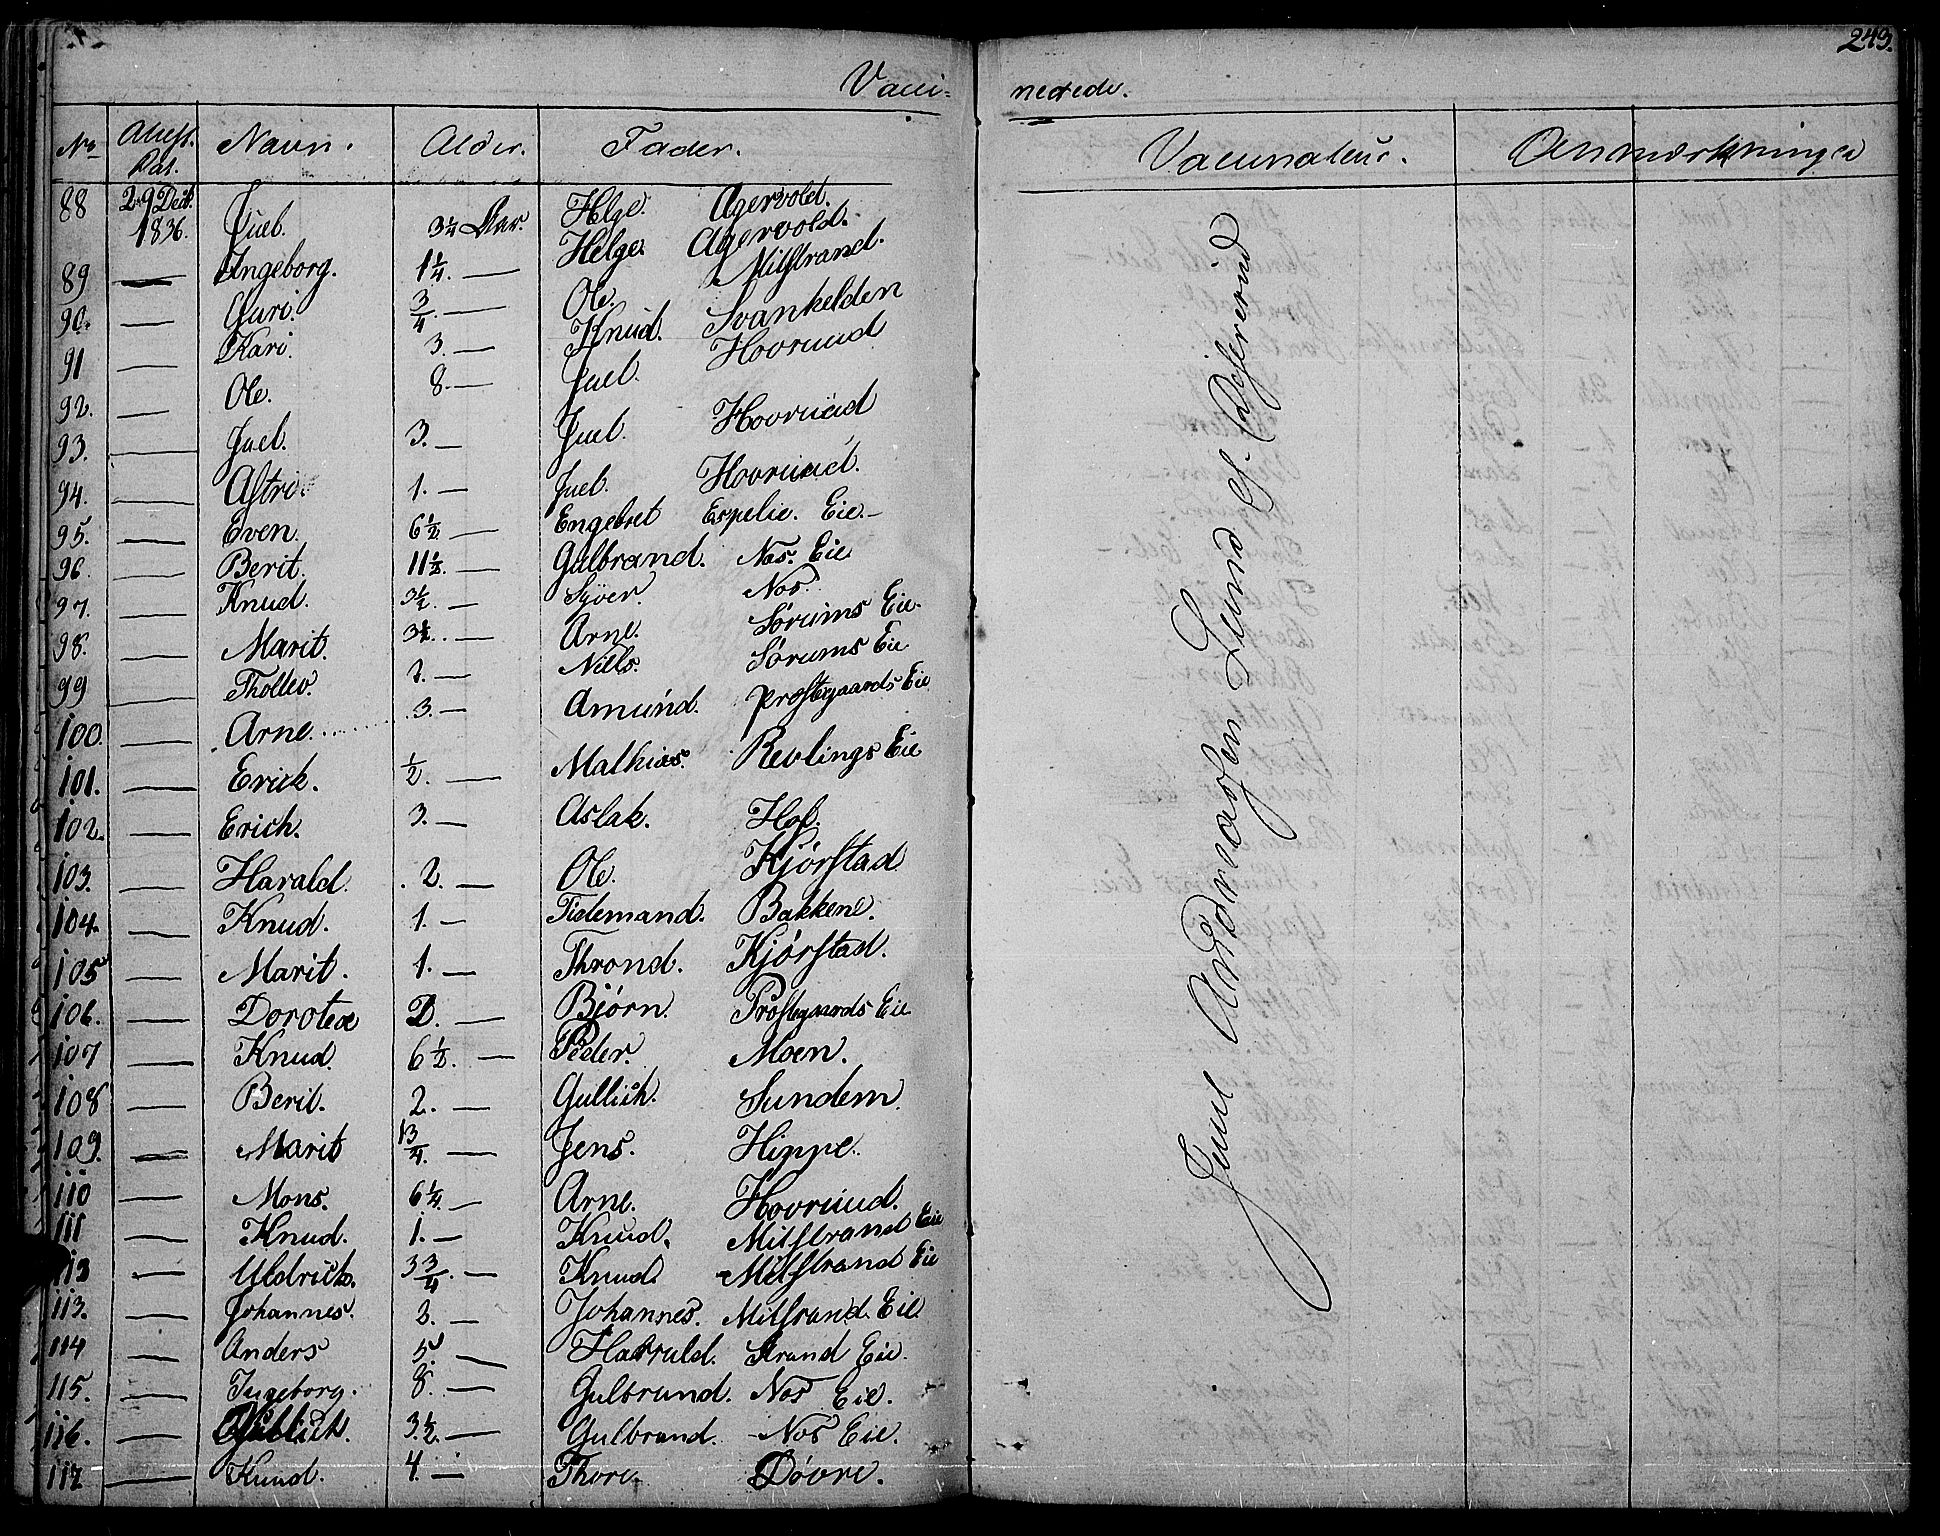 243.
Vacci-
nerede.
No Attest. Dat. Navn. Alder. Fader. Vaccinateur. Anmærkninger
88 29 Decb. 1836. Juel. 3¼ Aar. Helge. Agervold.
89 — Ingeborg. 1¼. — Helge. Agervold.
90. — Guri. ¾. — Ole. Milstrand.
91 — Kari. 3. — Knud. Svankelden
92. — Ole. 8. — Juel. Hovruud
93. — Juel. 3. — Juel. Hovruud
94. — Astri 1. — Juel. Hovruud.
95. — Even. 6½ — Engebret Espelie. Eie. —
96. — Berit. 11½. — Gulbrand. Nos. Eie
97. — Knud. 3½. — Syver. Nos.
98. — Marit. 3½. — Arne. Sørums Eie.
99 — Thollev. 3. — Niels. Sørums Eie
100. — Arne. 3. — Amund. Prostegaards Eie
101. — Erick. ½. — Mathias. Revlings Eie
102. — Erich. 3. — Aslak. Hof.
103. — Harald. 2. — Ole. Kjørstad
104. — Knud. 1. — Tidemand. Bakkene.
105 — Marit. 1. — Thrond. Kjørstad.
106. — Dorotea 2. — Bjørn. Prostegaards Eie
107 — Knud. 6½. — Peder. Moen.
108 — Berit. 2. — Gullich. Sundem.
109. — Marit 1¾. — Jens. Hippe.
110 — Mons. 6¼. — Arne. Hovruud.
111 — Knud. 1. — Knud. Milstrand Eie
113 — Uldrich. 3¾. — Knud. Milstrand Eie
113. — Johannes. 3. — Johannes. Milstrand. Eie
114 — Anders 5. — Harald. Strand Eie.
115. — Ingeborg. 8. — Gulbrand. Nos Eie.
116. — Gullich. 3½. — Gulbrand. Nos Eie.
117 — Knud. 4. — Thore. Døvre.
Juul Andreasen Lund